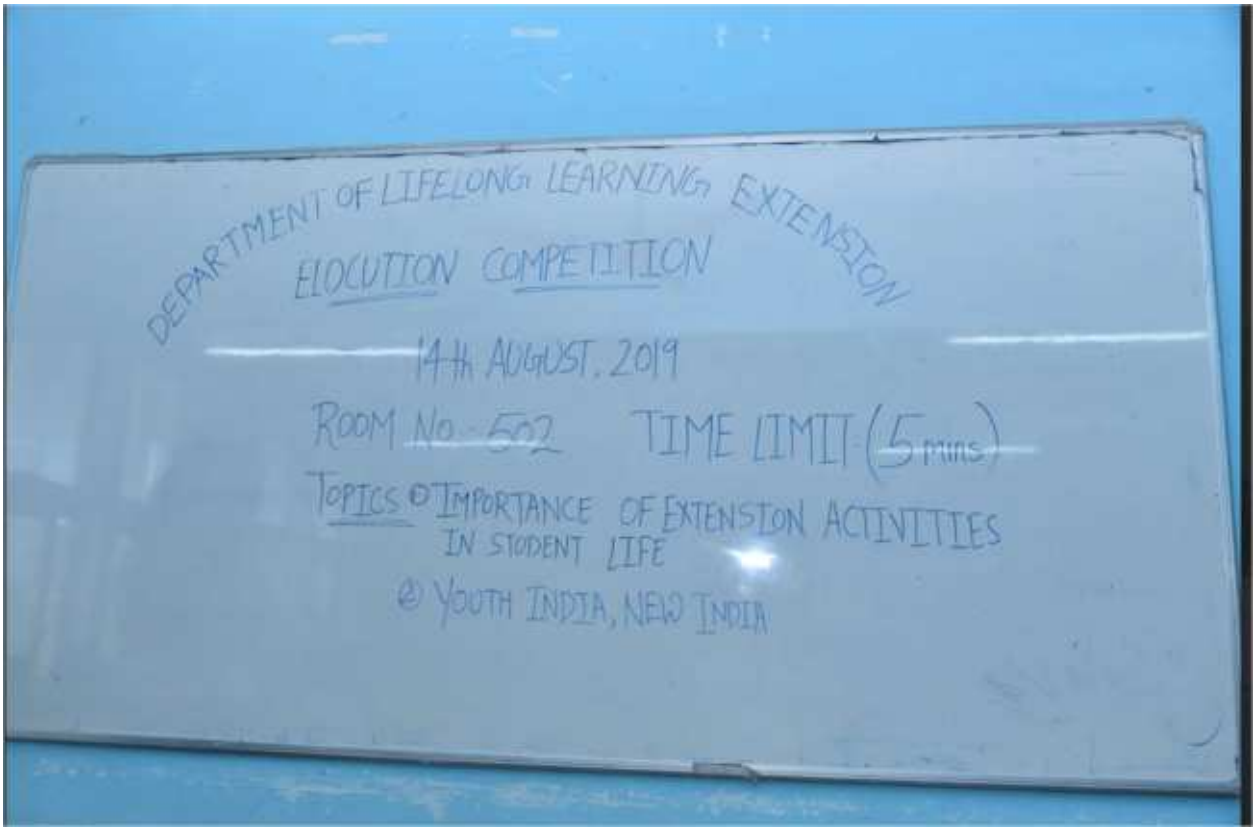 DEPARTMENT OF LIFELONG LEARNING EXTENSION
ELOCUTION COMPETITION
14th AUGUST, 2019
ROOM No. 502 TIME LIMIT (5 mins)
TOPICS ① IMPORTANCE OF EXTENSION ACTIVITIES
IN STUDENT LIFE
② YOUTH INDIA, NEW INDIA